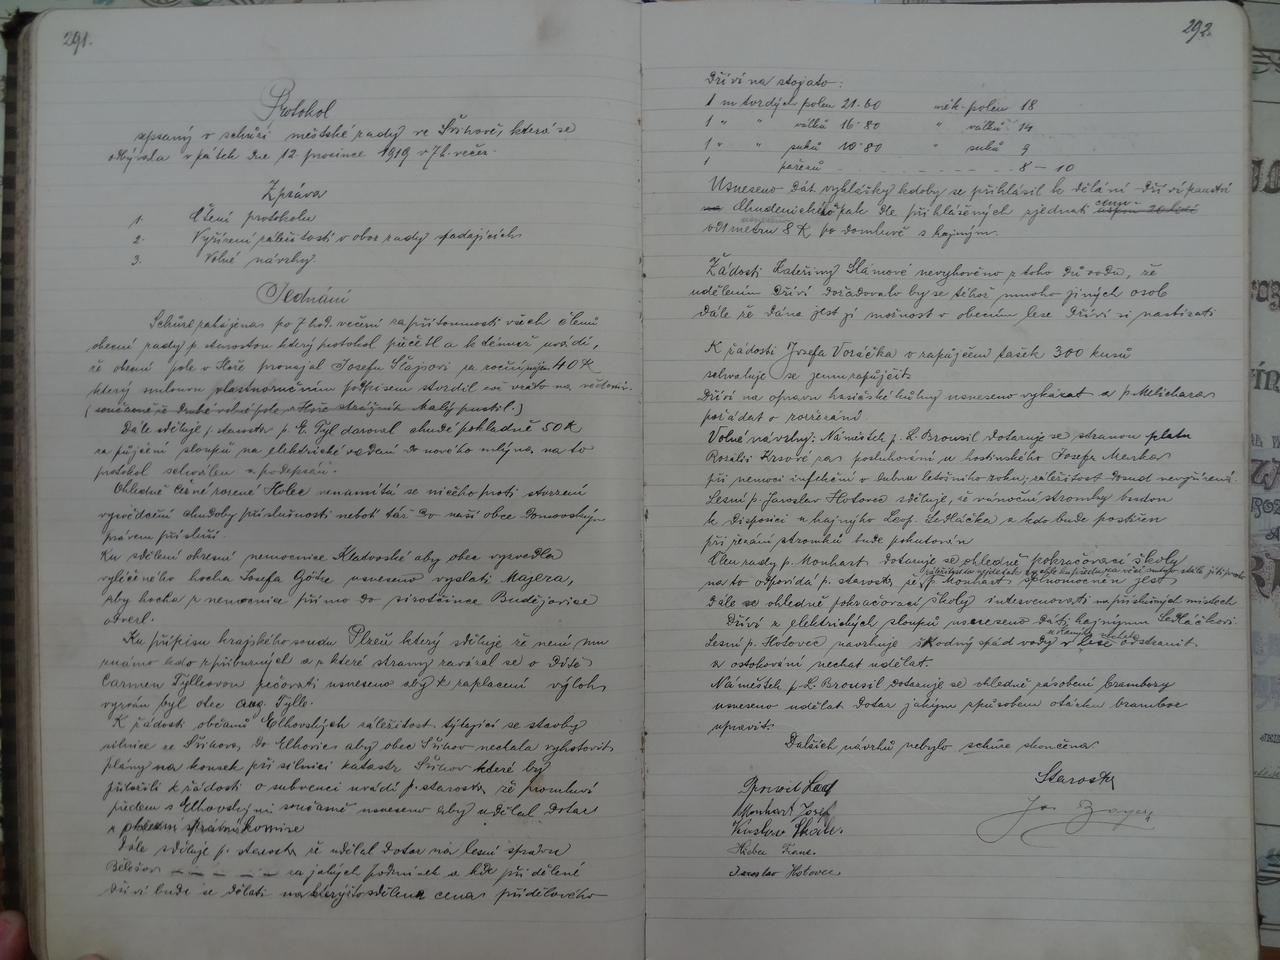 291.
Protokol
zpsaný v schůzi městské rady ve Švihově, která se
odbývala v pátek dne 12. prosince 1919 v 7 h. večer.
Zpráva
1. Čtení protokolu
2. Vyřízení záležitostí v obor rady spadajících
3. Volné návrhy.
Jednání
Schůze zahájena po 7 hod. večerní za přítomnosti všech členů
obecní rady p. starostou který protokol přečetl a k témuž uvádí,
že obecní pole v Hoře pronajal Josefu Šlajsovi za roční 40 K
který smlouvu vlastnoručním podpisem stvrdil což vzato na vědomí.
(současně že druhé volné pole v Hoře Malý pustil.)
Dále sděluje p. starosta p. E. Tyl daroval chudé pokladně 50 K
za půjčení sloupů na elektrické vedení do nového mlýna na to
protokol schválen a podepsán.
Ohledně rozené Holec nenamítá se ničeho proti stvrzení
vysvědčení chudoby příslušnosti neboť táž do naší obce domovským
právem přísluší.
Ku sdělení okresní nemocnice Klatovské aby obec vyzvedla
vyléčeného hocha Josefa usneseno vyslati Majera,
aby hocha z nemocnice přímo do sirotčince Budějovice
odvezl.
Ku přípisu krajského soudu Plzeň který sděluje že není mu
známo kdo z příbuzných a z které strany zavázal se o dítě
Carmen Tylleovou pečovati usneseno aby k zaplacení výloh
vyzván byl otec Aug. Tylle.
K žádosti občanů Elhovských záležitost týkající se stavby
silnice ze Švihova do Elhovic aby obec Švihov nechala vyhotovit
plány na kousek při silnici katastr Švihov které by
přiložili k žádosti o subvenci uvádí p. starosta že promluví
předem s Elhovskými současně usneseno aby udělal dotaz
Dále sděluje p. starosta že udělal dotaz na lesní správu
za jakých podmínek a kde přidělené
dříví bude se dělati na cena přiděleného
292.
Dříví na stojato:
1 m tvrdých polen 21·60 měk. polen 18
1 " " válků 16·80 " válků 14
1 " " suků 10·80 " suků 9
1 pařezů 8 — 10
Usneseno dát vyhlášky kdoby se přihlásil k dělání dříví panství
Chudenické pak dle přihlášených sjednati cenu
od 1 metru 8 K po domluvě s hajným.
Žádosti Kateřiny Slámové nevyhověno z toho důvodu, že
udělením dříví dožadovalo by se téhož mnoho jiných osob
dále že dána jest jí možnost v obecním lese dříví si nasbírati
K žádosti Josefa Voráčka o zapůjčení tašek 300 kusů
schvaluje se jemu zapůjčit.
Dříví na opravu hasičské kůlny usneseno vykázat a p. Melichara
požádat o rozřezání
Volné návrhy: Náměstek p. L. Brousil dotazuje se stranou platu
Rosalii Krsové za posluhování u hostinského Josefa
při nemoci infekční v dubnu letošního roku; záležitost dosud nevyřízená.
Lesní p. Jaroslav Hotovec sděluje, že vánoční stromky budou
k disposici u hajného Leop. Sedláčka a kdo bude postižen
při řezání stromků bude pokutován
Člen rady p. Monhart dotazuje se ohledně pokračovací školy
na to odpovídá p. starosta že p. Monhart splnomocněn jest
dále se ohledně pokračovací školy intervenovati na příslušných místech
Dříví z elektrických sloupů usneseno dáti hajnému Sedláčkovi
Lesní p. Hotovec navrhuje škodný spád vody v lese odstranit
a ostokování nechat udělat.
Náměstek p. L. Brousil dotazuje se ohledně zásobení brambory
usneseno udělat dotaz jakým způsobem otázku brambor
upravit.
Dalších návrhů nebylo schůze skončena
Starosta
Monhart Josef
Jaroslav Hotovec